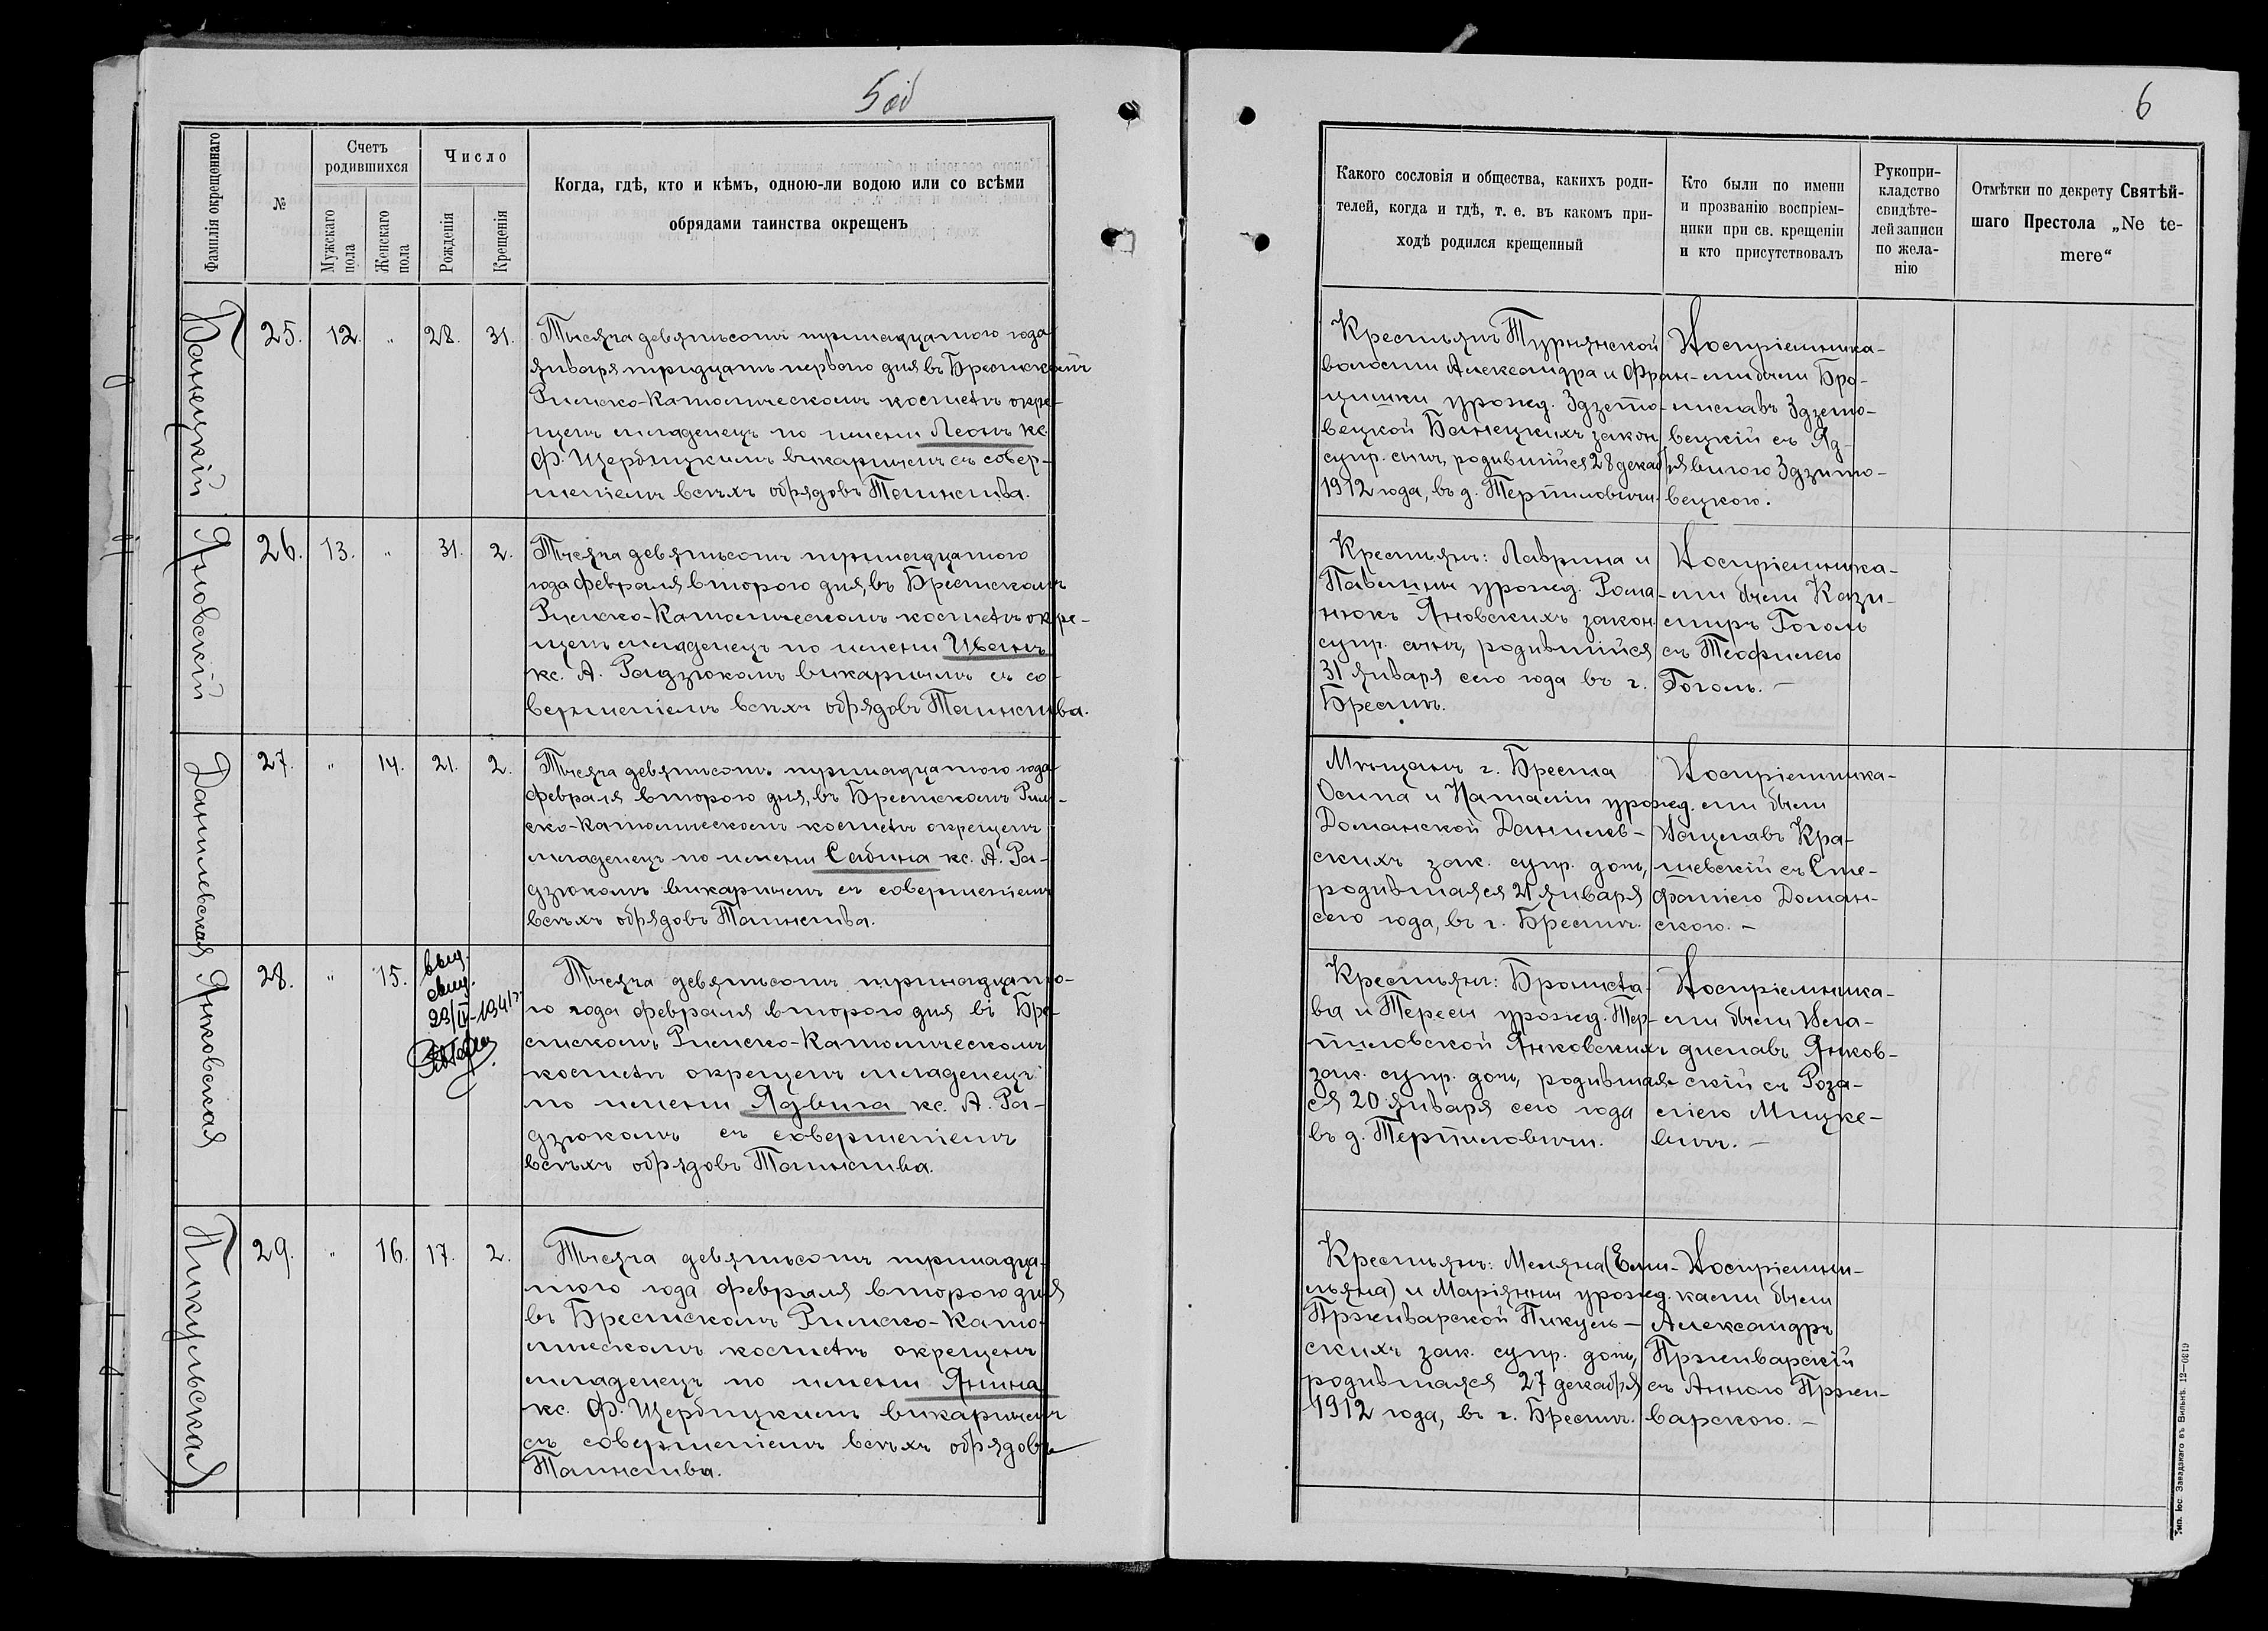 5 об
Фамилія окрещеннаго
№
Счетъ
родившихся
Мужскаго
пола
Женскаго
пола
Число
Рожденія
Крещенія
Когда, гдѣ, кто и кѣмъ, одною-ли водою или со всѣми
обрядами таинства окрещенъ
Банецкій
25. 12. " 28. 31.
Тысяча девятьсотъ тринадцатого года
января тридцать первого дня въ Брестскомъ
Римско-Католическомъ костелѣ окре-
щенъ младенецъ по имени Леонъ кс.
Ф. Щербицкимъ викаріемъ съ совер-
шеніемъ всѣхъ обрядовъ Таинства.
Яновскій
26. 13. " 31. 2.
Тысяча девятьсотъ тринадцатого
года февраля второго дня, въ Брестскомъ
Римско-Католическомъ костелѣ окре-
щенъ младенецъ по имени Иванъ
кс. А. Радзюкомъ викаріемъ съ со-
вершеніемъ всѣхъ обрядовъ Таинства.
Данилевская
27. " 14. 21. 2.
Тысяча девятьсотъ тринадцатого года
февраля второго дня, въ Брестскомъ Рим-
ско-Католическомъ костелѣ окрещенъ
младенецъ по имени Сабина кс. А. Ра-
дзюкомъ викаріемъ съ совершеніемъ
всѣхъ обрядовъ Таинства.
Янковская
28. " 15.
выд.
свид.
29/IV-1941 г.
Тысяча девятьсотъ тринадцато-
го года февраля второго дня въ Бре-
стскомъ Римско-Католическомъ
костелѣ окрещенъ младенецъ
по имени Ядвига кс. А. Ра-
дзюкомъ съ совершеніемъ
всѣхъ обрядовъ Таинства.
Пикульская
29. " 16. 17. 2.
Тысяча девятьсотъ тринадца-
того года февраля второго дня
въ Брестскомъ Римско-Като-
лическомъ костелѣ окрещенъ
младенецъ по имени Янина
кс. Ф. Щербицкимъ викаріемъ
съ совершеніемъ всѣхъ обрядовъ
Таинства.
6
Какого сословія и общества, какихъ роди-
телей, когда и гдѣ, т. е. въ какомъ при-
ходѣ родился крещенный
Кто были по имени
и прозванію воспріем-
ники при св. крещеніи
и кто присутствовалъ
Рукопри-
кладство
свидѣте-
лей записи
по жела-
нію
Отмѣтки по декрету Святѣй-
шаго Престола „Ne te-
mere“
Крестьянъ Турнянской
волости Александра и Фран-
цишки урожд. Здзето-
вецкой Банецкихъ закон.
супр. сынъ, родившійся 28 декабря
1912 года, въ д. Терпиловичи.
Воспріемника-
ми были Бро-
ниславъ Здзето-
вецкій съ Яд-
вигою Здзито-
вецкою.
Крестьянъ: Лаврина и
Павлины урожд. Рома-
нюкъ Яновскихъ закон.
супр. сынъ, родившійся
31 января сего года въ г.
Брестѣ.
Воспріемника-
ми были Кази-
миръ Гоголь
съ Теофилею
Гоголь. –
Мѣщанъ г. Бреста
Осипа и Наталіи урожд.
Доманской Данилев-
скихъ зак. супр. дочь,
родившаяся 21 января
сего года, въ г. Брестѣ.
Воспріемника-
ми были
Вацлавъ Кра-
шевскій съ Сте-
фаніею Доман-
скою. –
Крестьянъ: Бронисла-
ва и Тересы урожд. Тер-
пиловской Янковскихъ
зак. супр. дочь, родивша-
ся 20 января сего года
въ д. Терпиловичи.
Воспріемника-
ми были Вла-
диславъ Янков-
скій съ Роза-
ліею Мицке-
вичъ. –
Крестьянъ: Меляна (Еми-
льяна) и Маріянны урожд.
Прживарской Пикуль-
скихъ зак. супр. дочь,
родившаяся 27 декабря
1912 года, въ г. Брестѣ.
Воспріемни-
ками были
Александръ
Прживарскій
съ Анною Пржи-
варскою. –
Тип. Іос. Завадзкаго въ Вильнѣ. 12—0319